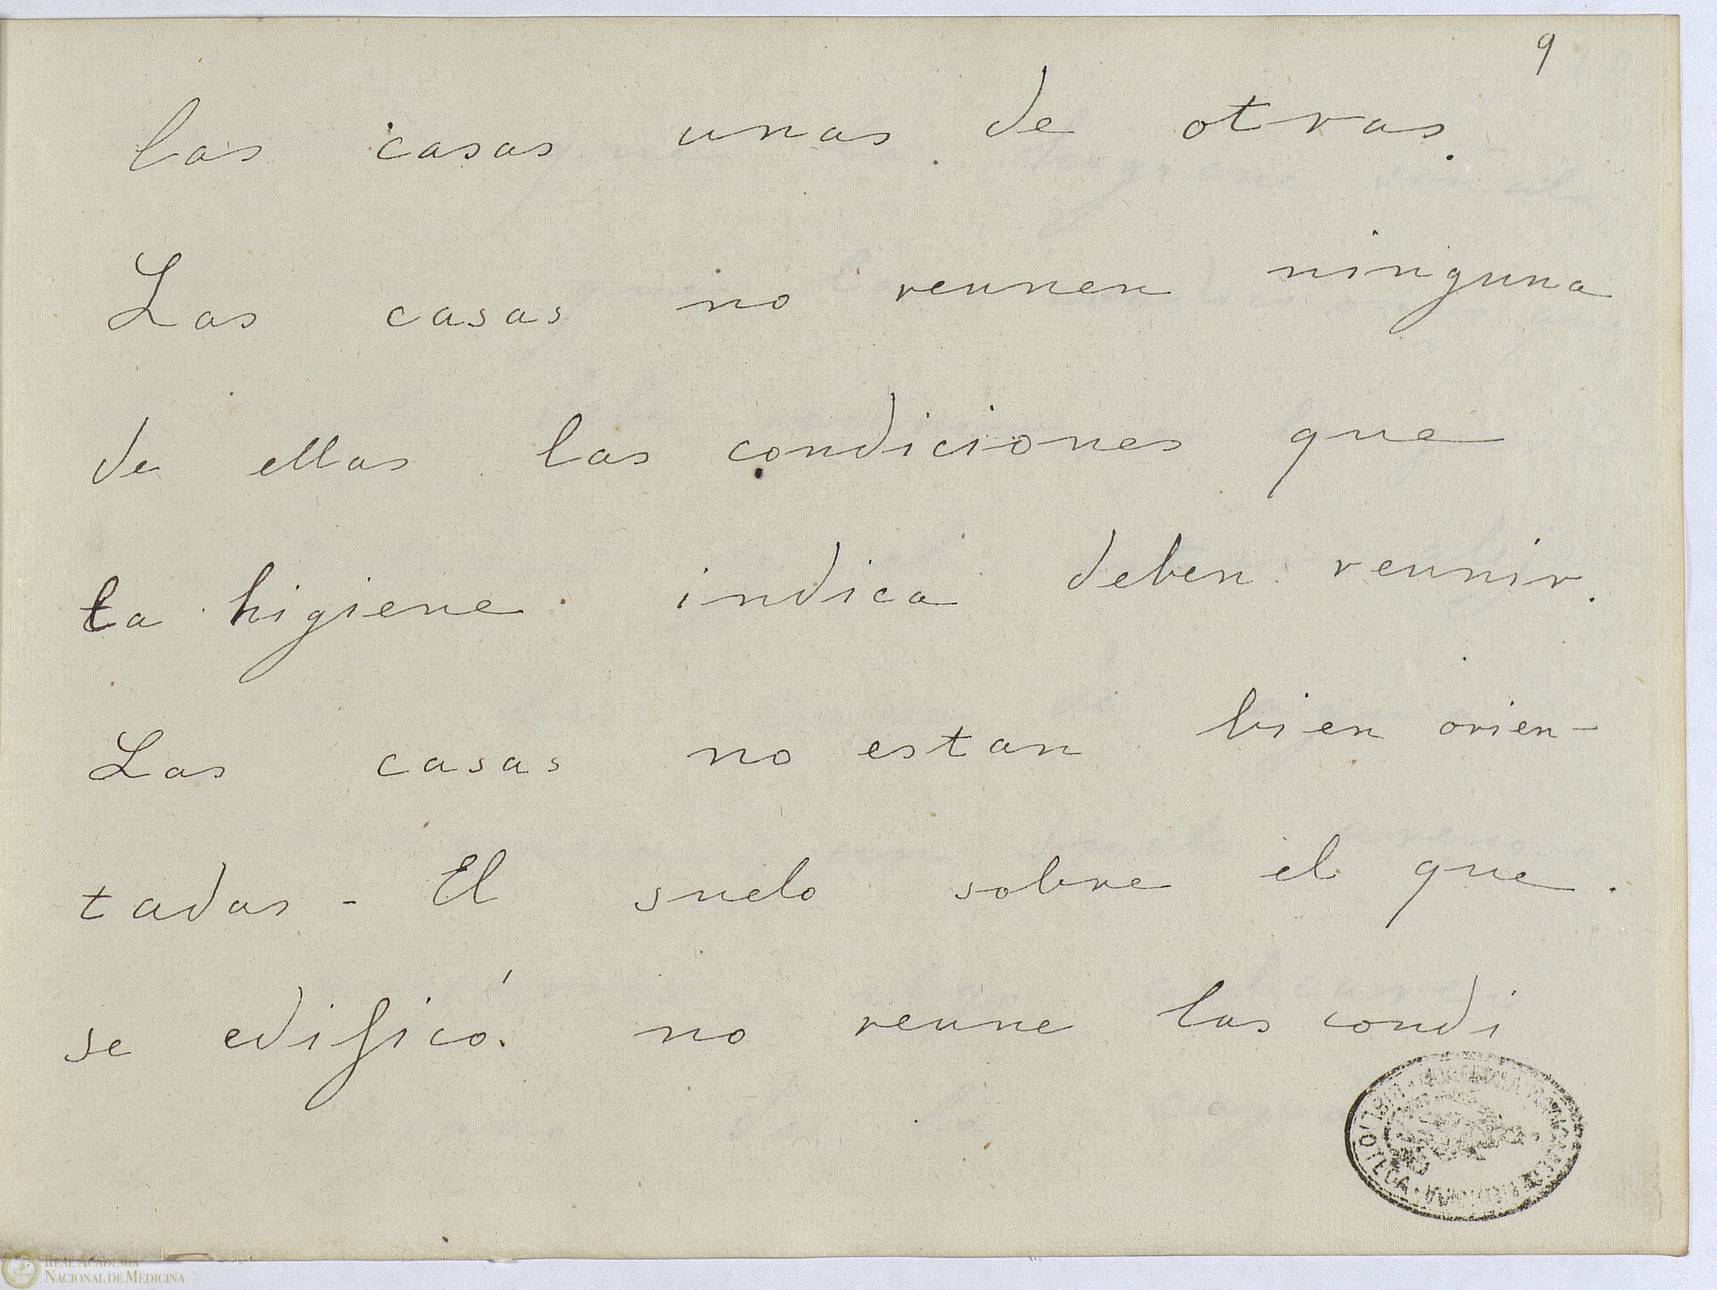 9
las casas unas de otras.
Las casas no reunen ninguna
de ellas las condiciones que
la higiene indica deben reunir.
Las casas no estan bien orien-
tadas - El suelo sobre el que
se edificó no reune las condi
BIBLIOTECA
REAL ACADEMIA
NACIONAL DE MEDICINA